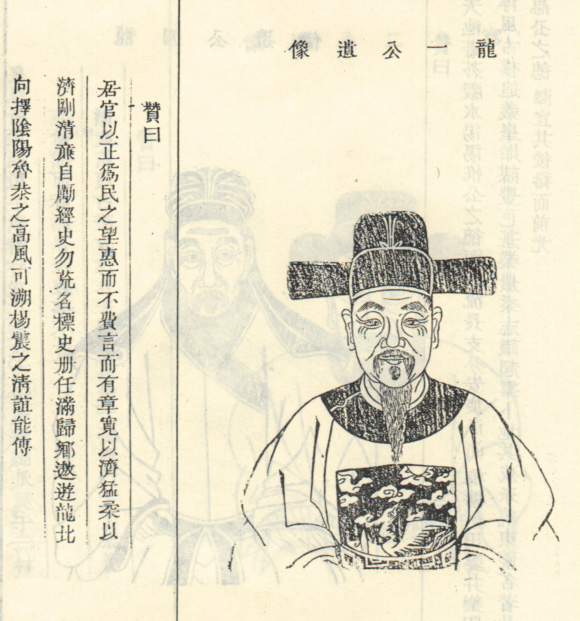 龍一公遺像
贊曰
居官以正爲民之望惠而不費言而有章寬以濟猛柔以
濟剛清亷自勵經史勿荒名標史册任滿歸鄉遨遊龍北
向擇陰陽魯恭之高風可溯楊震之清誼能傳